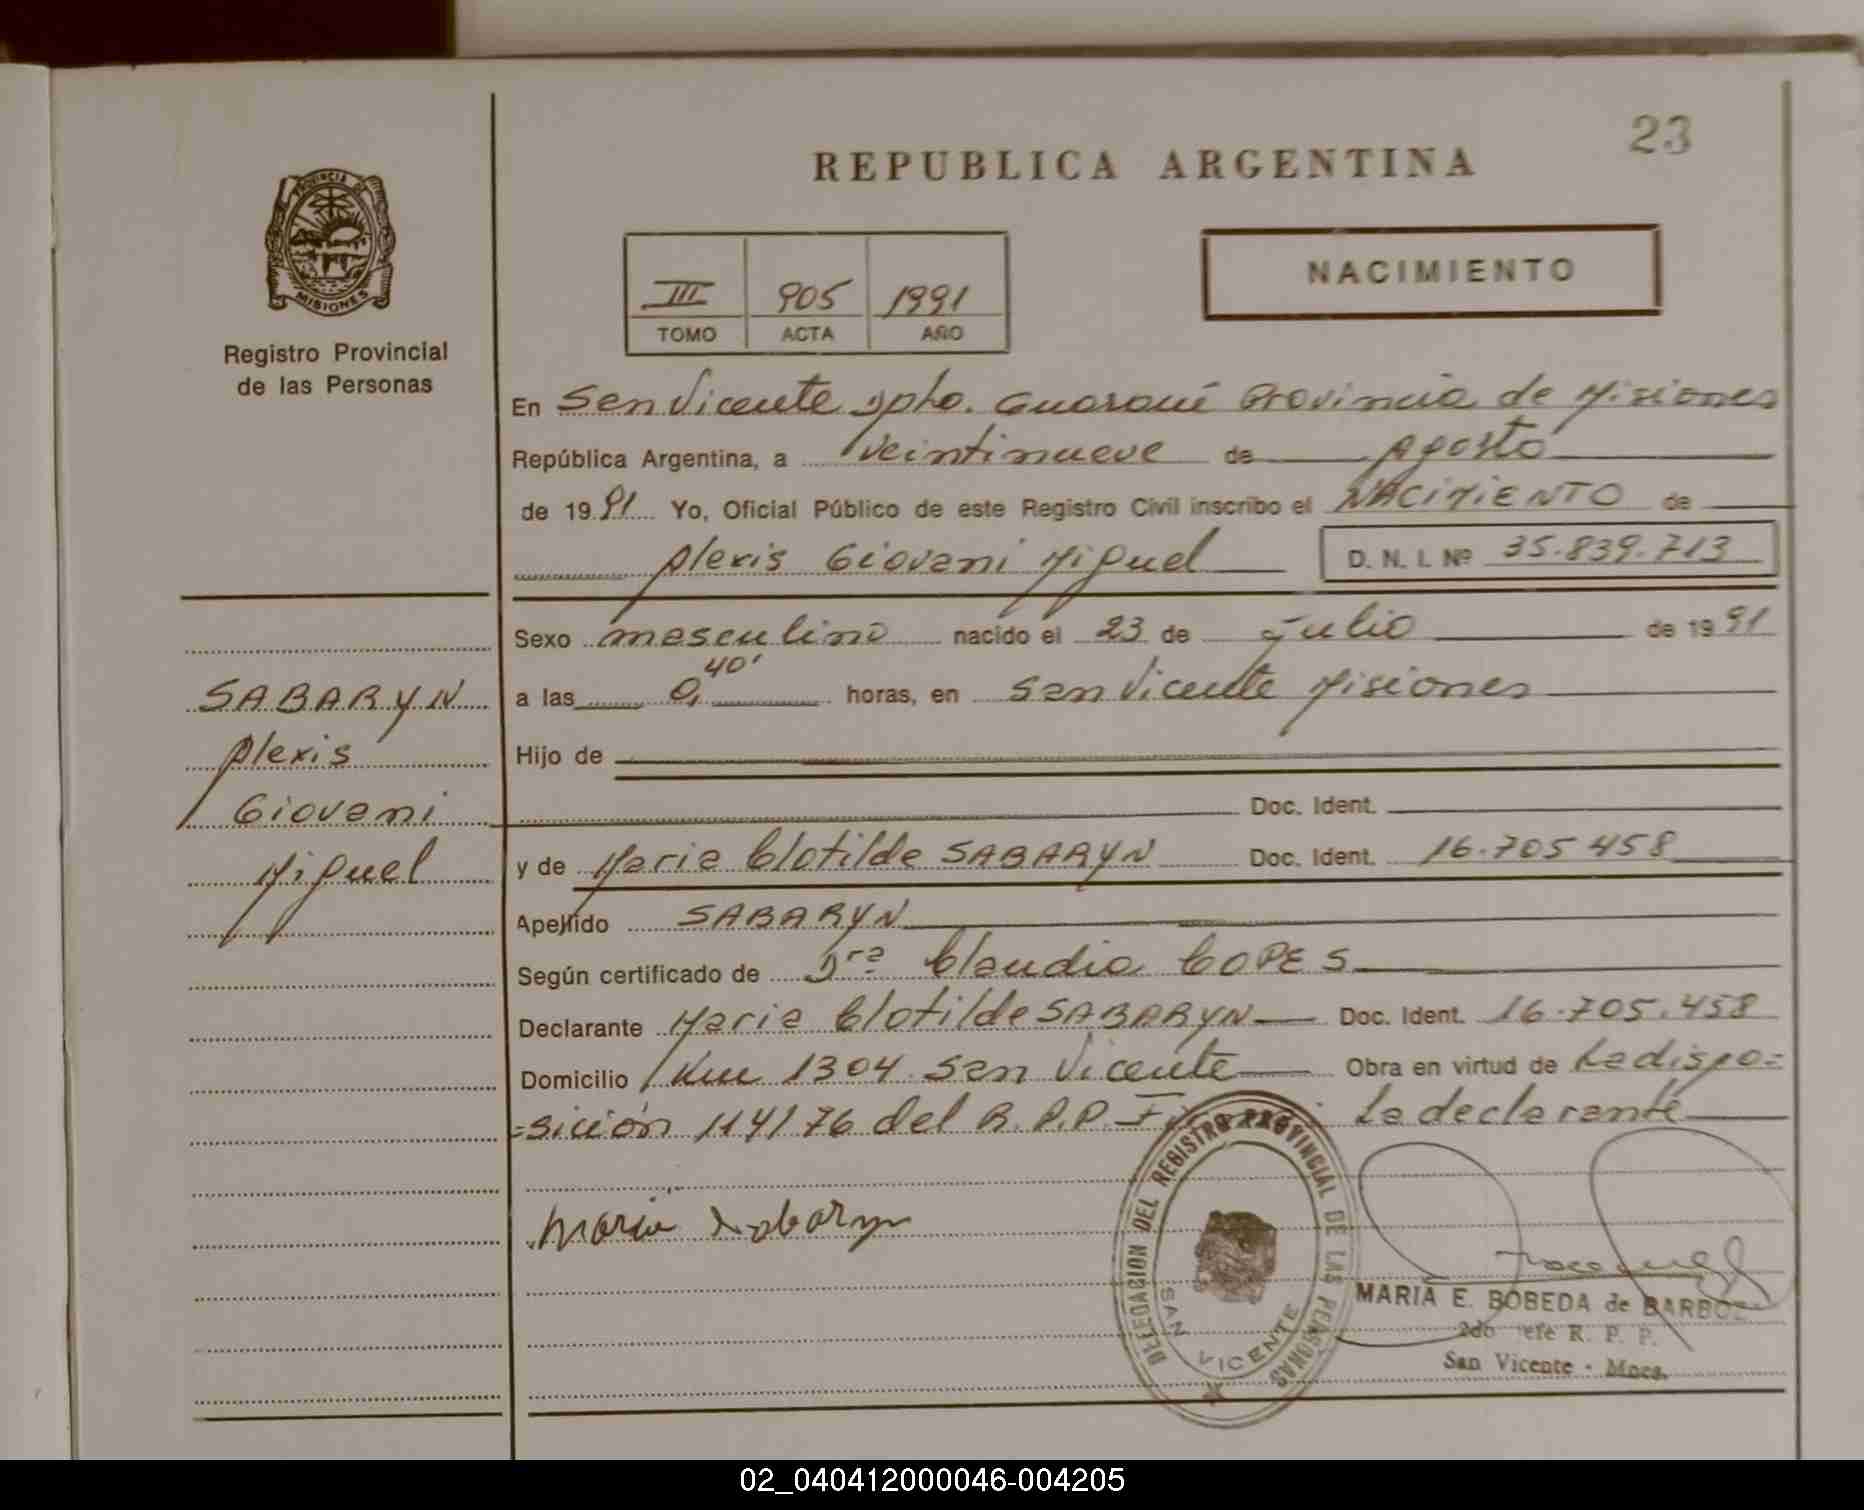 23
REPUBLICA ARGENTINA
PROVINCIA DE
MISIONES
Registro Provincial
de las Personas
III 905 1991
TOMO ACTA AÑO
NACIMIENTO
En San Vicente Dpto. Guaraní Provincia de Misiones
República Argentina, a veintinueve de Agosto
de 1991 Yo, Oficial Público de este Registro Civil inscribo el NACIMIENTO de
Alexis Giovani Miguel D. N. I. Nº 35.839.713
Sexo masculino nacido el 23 de Julio de 1991
a las 0,40' horas, en San Vicente Misiones
Hijo de
Doc. Ident.
y de Maria Clotilde SABARYN Doc. Ident. 16.705.458
Apellido SABARYN
Según certificado de Dra Claudia COPES
Declarante Maria Clotilde SABARYN Doc. Ident. 16.705.458
Domicilio Km 1304 San Vicente Obra en virtud de La dispo=
=sición 114/76 del R.P.P. La declarante
SABARYN
Alexis
Giovani
Miguel
Maria Sabaryn
DELEGACION DEL REGISTRO PROVINCIAL DE LAS PERSONAS
SAN VICENTE
MARIA E. BOBEDA de BARBOZ
2do Jefe R. P. P.
San Vicente - Mnes.
02_040412000046-004205